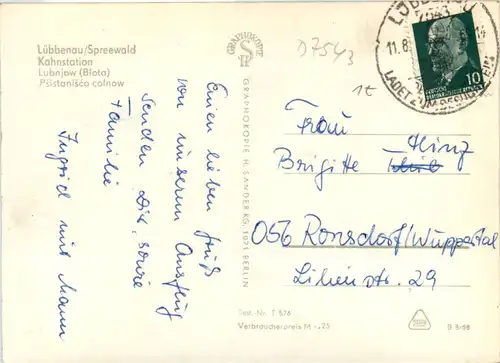 Lübbenau/Spreewald
Kahnstation
Lubnjow (Błota)
Pśistanišćo colnow
GRAPHOKOPIE
H
D7543
1€
LÜBBENAU
7543
11.8
LADET ZUM BESUCH EIN
10
DEUTSCHE
DEMOKRATISCHE REPUBLIK
GRAPHOKOPIE H. SANDER KG. 1071 BERLIN
Einen lieben Gruß
von unserem Ausflug
senden Dir, sowie
Familie
Ingrid mit Mann
Frau
Brigitte Hinz
056 Ronsdorf/Wuppertal
Lilienstr. 29
Best.-Nr. T 576
Verbraucherpreis M -,25